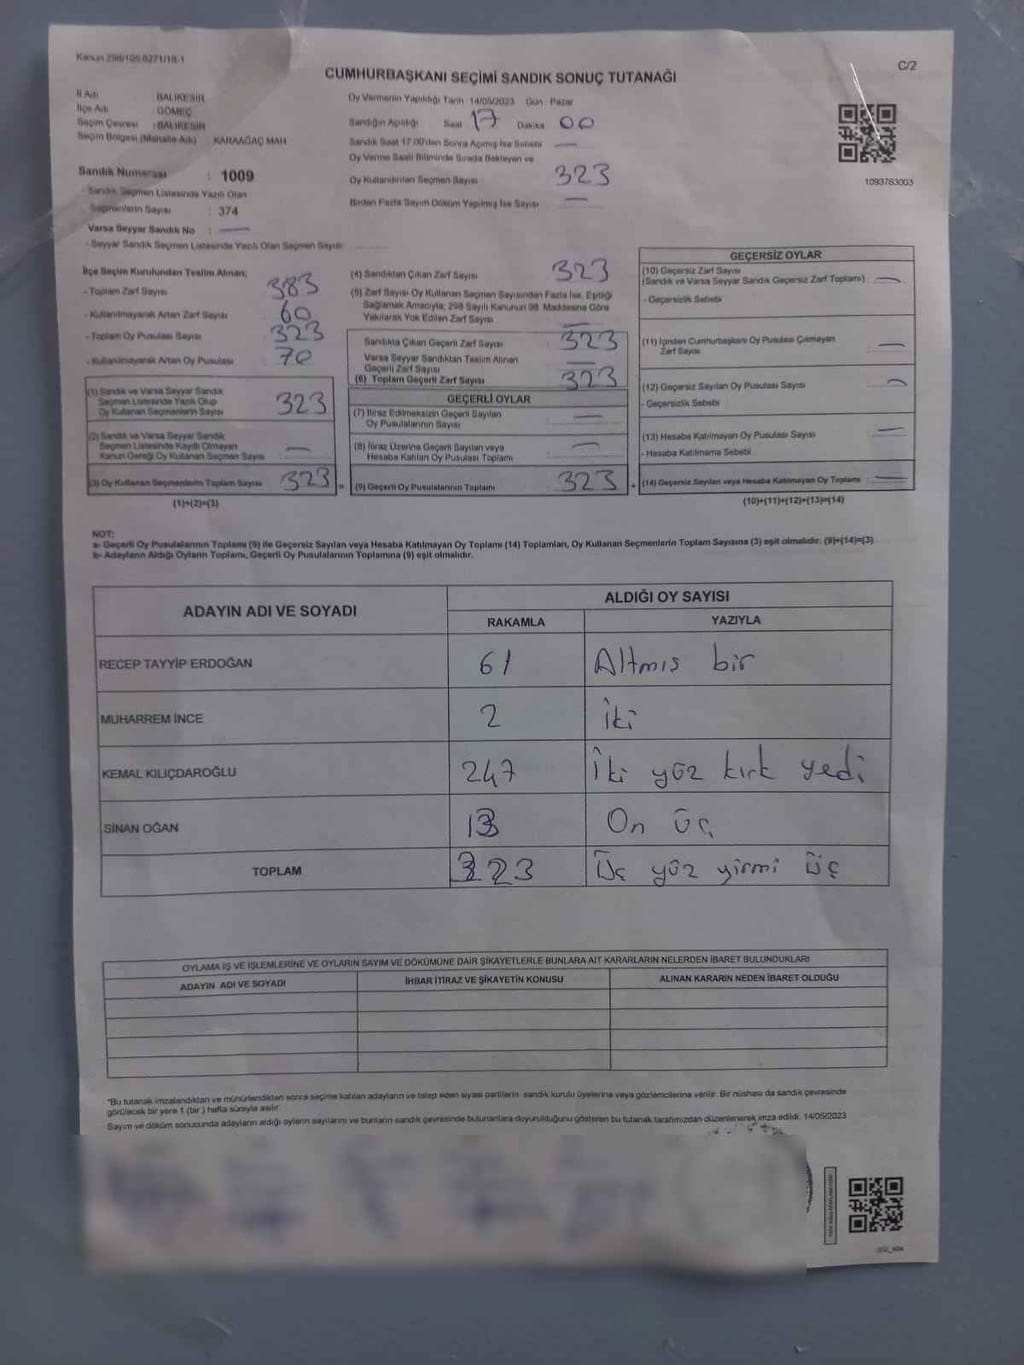 Kanun 298/105 6271/18-1
C/2
CUMHURBAŞKANI SEÇİMİ SANDIK SONUÇ TUTANAĞI
İl Adı : BALIKESİR
İlçe Adı : GÖMEÇ
Seçim Çevresi : BALIKESİR
Seçim Bölgesi (Mahalle Adı) : KARAAĞAÇ MAH
Sandık Numarası : 1009
- Sandık Seçmen Listesinde Yazılı Olan
Seçmenlerin Sayısı : 374
Varsa Seyyar Sandık No : —
- Seyyar Sandık Seçmen Listesinde Yazılı Olan Seçmen Sayısı:
Oy Vermenin Yapıldığı Tarih 14/05/2023 Gün : Pazar
Sandığın Açıldığı Saat 17 Dakika 00
Sandık Saat 17:00'den Sonra Açılmış İse Sebebi —
Oy Verme Saati Bitiminde Sırada Bekleyen ve
Oy Kullandırılan Seçmen Sayısı 323
Birden Fazla Sayım Döküm Yapılmış İse Sayısı —
1093763003
İlçe Seçim Kurulundan Teslim Alınan;
- Toplam Zarf Sayısı 383
- Kullanılmayarak Artan Zarf Sayısı 60
- Toplam Oy Pusulası Sayısı 323
- Kullanılmayarak Artan Oy Pusulası 70
(1) Sandık ve Varsa Seyyar Sandık
Seçmen Listesinde Yazılı Olup
Oy Kullanan Seçmenlerin Sayısı 323
(2) Sandık ve Varsa Seyyar Sandık
Seçmen Listesinde Kayıtlı Olmayan
Kanun Gereği Oy Kullanan Seçmen Sayısı —
(3) Oy Kullanan Seçmenlerin Toplam Sayısı 323 =
(1)+(2)=(3)
(4) Sandıktan Çıkan Zarf Sayısı 323
(5) Zarf Sayısı Oy Kullanan Seçmen Sayısından Fazla İse, Eşitliği
Sağlamak Amacıyla; 298 Sayılı Kanunun 98. Maddesine Göre
Yakılarak Yok Edilen Zarf Sayısı —
Sandıkta Çıkan Geçerli Zarf Sayısı 323
Varsa Seyyar Sandıktan Teslim Alınan
Geçerli Zarf Sayısı —
(6) Toplam Geçerli Zarf Sayısı 323
GEÇERLİ OYLAR
(7) İtiraz Edilmeksizin Geçerli Sayılan
Oy Pusulalarının Sayısı —
(8) İtiraz Üzerine Geçerli Sayılan veya
Hesaba Katılan Oy Pusulası Toplamı —
(9) Geçerli Oy Pusulalarının Toplamı 323 +
GEÇERSİZ OYLAR
(10) Geçersiz Zarf Sayısı
(Sandık ve Varsa Seyyar Sandık Geçersiz Zarf Toplamı) —
- Geçersizlik Sebebi
(11) İçinden Cumhurbaşkanı Oy Pusulası Çıkmayan
Zarf Sayısı —
(12) Geçersiz Sayılan Oy Pusulası Sayısı —
- Geçersizlik Sebebi
(13) Hesaba Katılmayan Oy Pusulası Sayısı —
- Hesaba Katılmama Sebebi
(14) Geçersiz Sayılan veya Hesaba Katılmayan Oy Toplamı —
(10)+(11)+(12)+(13)=(14)
NOT:
a- Geçerli Oy Pusulalarının Toplamı (9) ile Geçersiz Sayılan veya Hesaba Katılmayan Oy Toplamı (14) Toplamları, Oy Kullanan Seçmenlerin Toplam Sayısına (3) eşit olmalıdır. (9)+(14)=(3)
b- Adayların Aldığı Oyların Toplamı, Geçerli Oy Pusulalarının Toplamına (9) eşit olmalıdır.
ADAYIN ADI VE SOYADI
ALDIĞI OY SAYISI
RAKAMLA YAZIYLA
RECEP TAYYİP ERDOĞAN 61 Altmış bir
MUHARREM İNCE 2 İki
KEMAL KILIÇDAROĞLU 247 İki yüz kırk yedi
SİNAN OĞAN 13 On üç
TOPLAM 323 Üç yüz yirmi üç
OYLAMA İŞ VE İŞLEMLERİNE VE OYLARIN SAYIM VE DÖKÜMÜNE DAİR ŞİKAYETLERLE BUNLARA AİT KARARLARIN NELERDEN İBARET BULUNDUKLARI
ADAYIN ADI VE SOYADI İHBAR İTİRAZ VE ŞİKAYETİN KONUSU ALINAN KARARIN NEDEN İBARET OLDUĞU
*Bu tutanak imzalandıktan ve mühürlendikten sonra seçime katılan adayların ve talep eden siyasi partilerin sandık kurulu üyelerine veya gözlemcilerine verilir. Bir nüshası da sandık çevresinde
görülecek bir yere 1 (bir) hafta süreyle asılır.
Sayım ve döküm sonucunda adayların aldığı oyların sayılarını ve bunların sandık çevresinde bulunanlara duyurulduğunu gösteren bu tutanak tarafımızdan düzenlenerek imza edildi. 14/05/2023